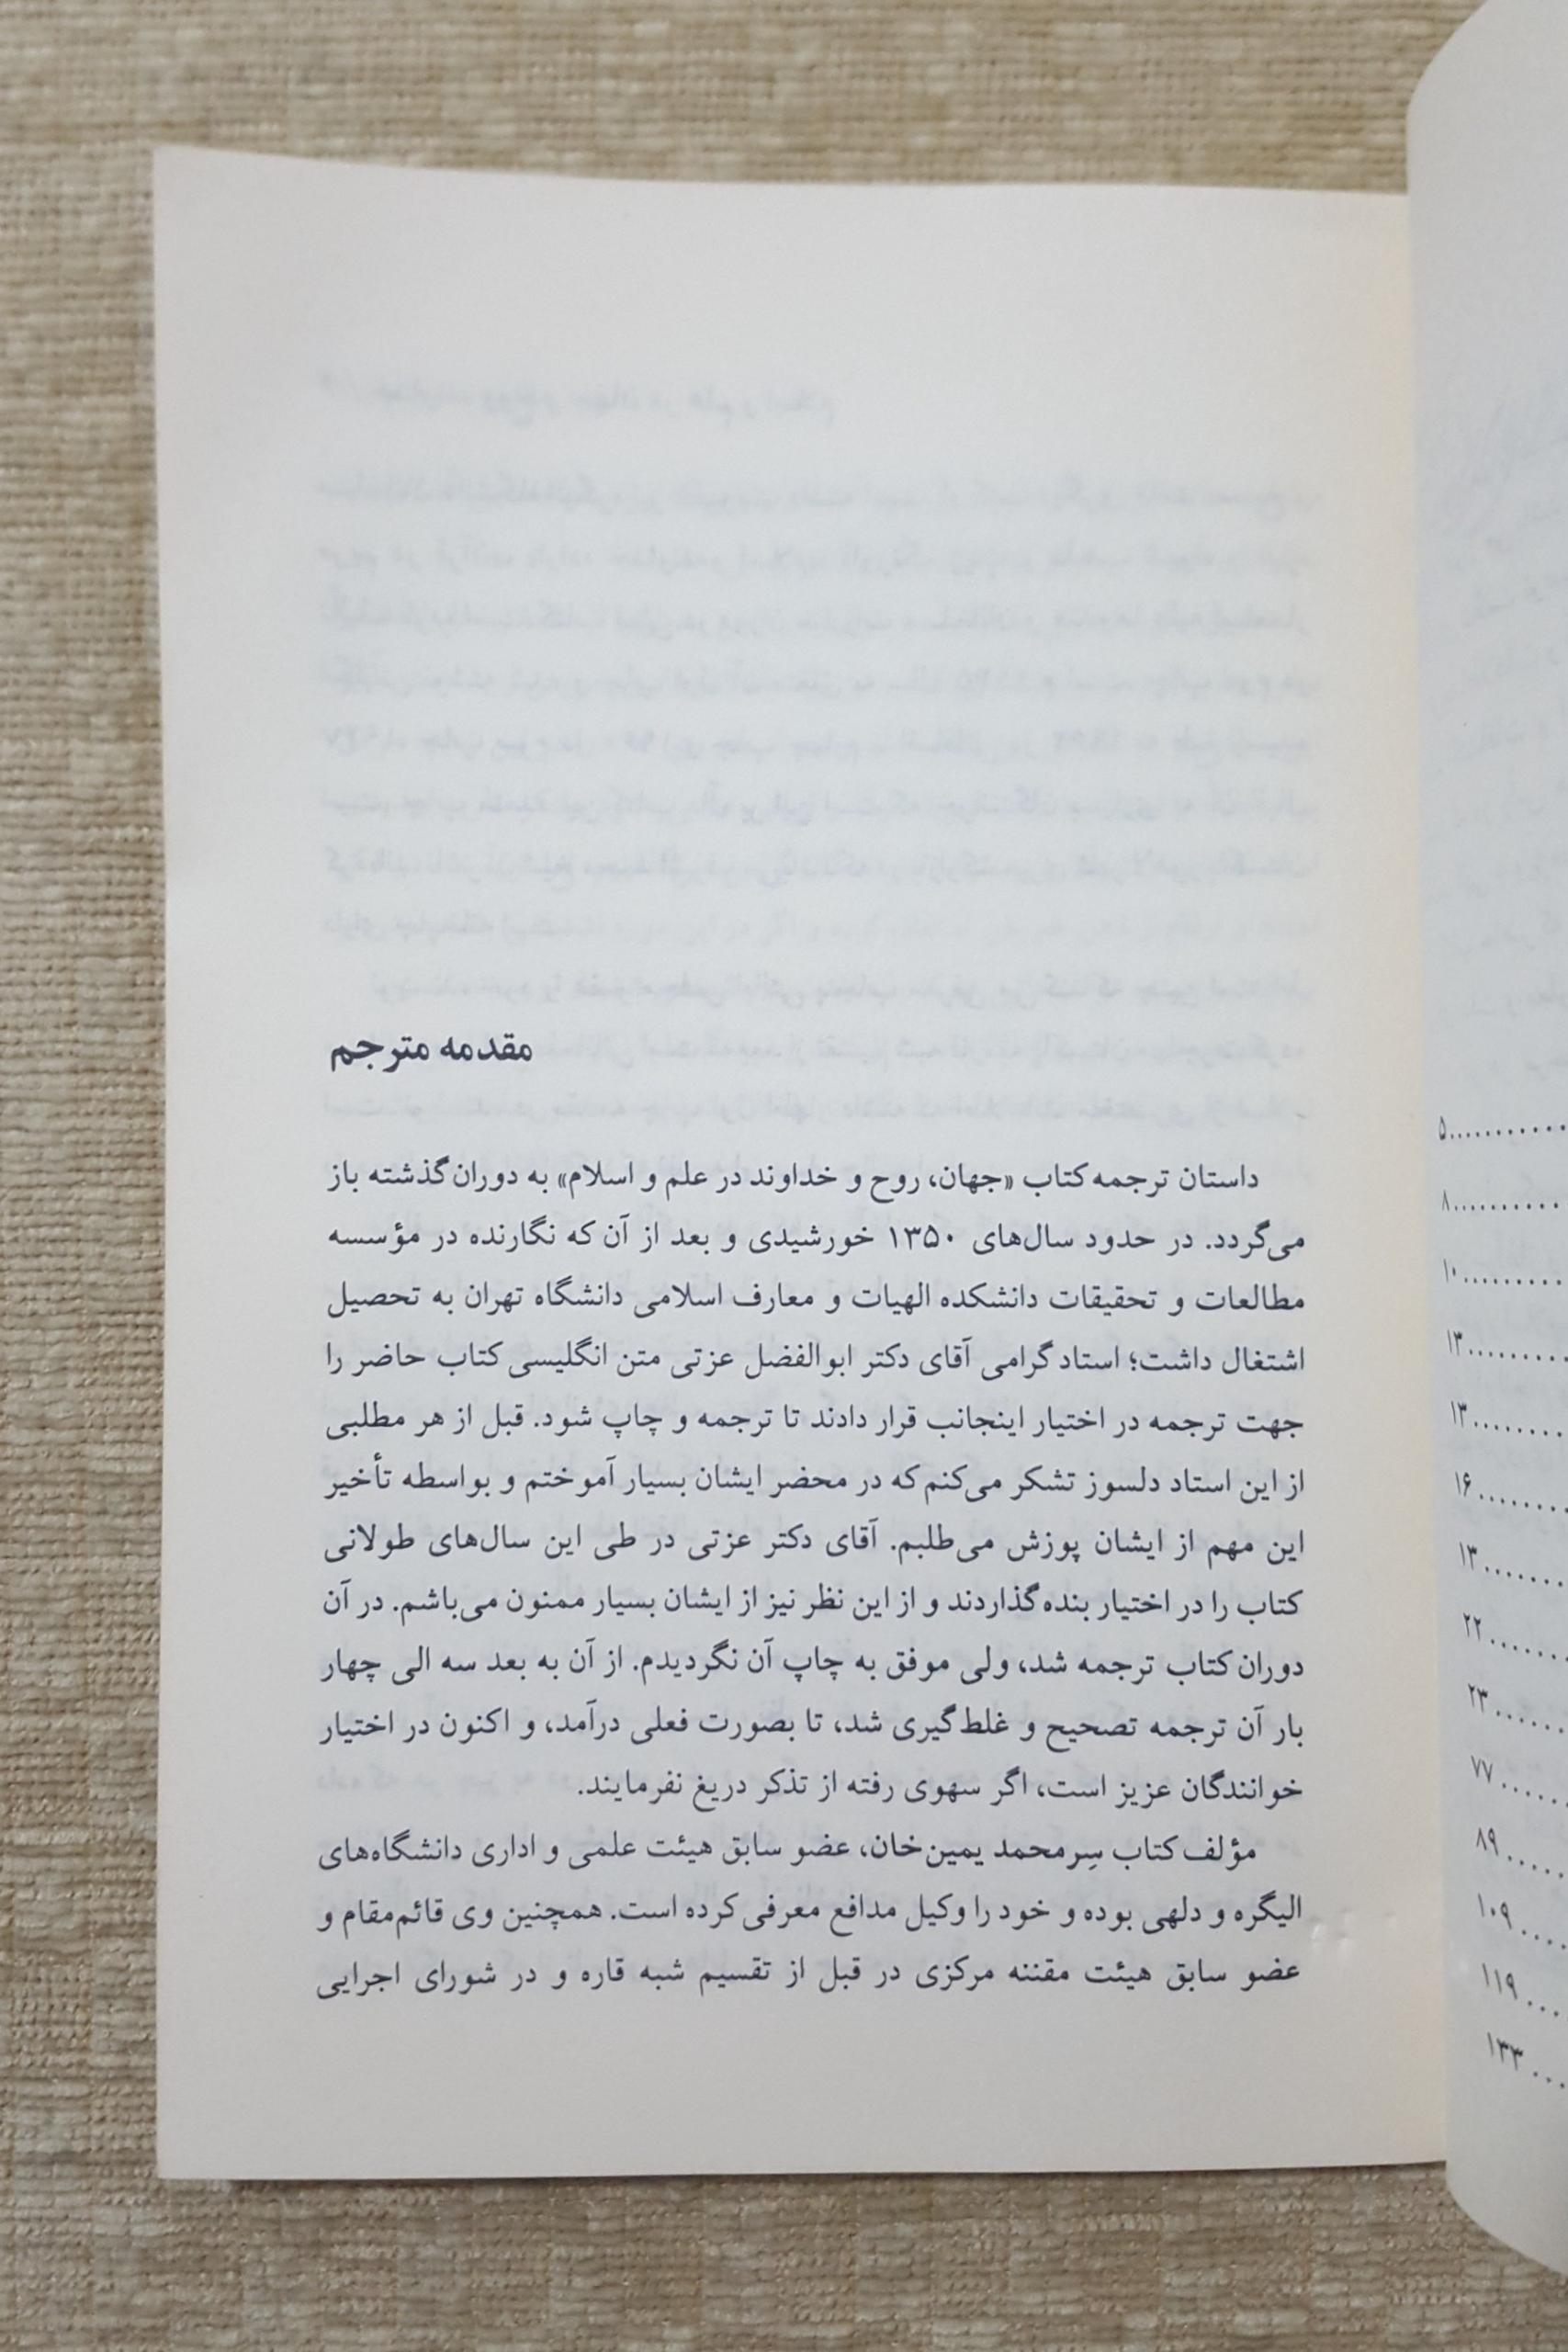 مقدمه مترجم
داستان ترجمه کتاب «جهان، روح و خداوند در علم و اسلام» به دوران گذشته باز
می‌گردد. در حدود سال‌های ۱۳۵۰ خورشیدی و بعد از آن که نگارنده در مؤسسه
مطالعات و تحقیقات دانشکده الهیات و معارف اسلامی دانشگاه تهران به تحصیل
اشتغال داشت؛ استاد گرامی آقای دکتر ابوالفضل عزتی متن انگلیسی کتاب حاضر را
جهت ترجمه در اختیار اینجانب قرار دادند تا ترجمه و چاپ شود. قبل از هر مطلبی
از این استاد دلسوز تشکر می‌کنم که در محضر ایشان بسیار آموختم و بواسطه تأخیر
این مهم از ایشان پوزش می‌طلبم. آقای دکتر عزتی در طی این سال‌های طولانی
کتاب را در اختیار بنده گذاردند و از این نظر نیز از ایشان بسیار ممنون می‌باشم. در آن
دوران کتاب ترجمه شد، ولی موفق به چاپ آن نگردیدم. از آن به بعد سه الی چهار
بار آن ترجمه تصحیح و غلط‌گیری شد، تا بصورت فعلی درآمد، و اکنون در اختیار
خوانندگان عزیز است، اگر سهوی رفته از تذکر دریغ نفرمایند.
مؤلف کتاب سِرمحمد یمین‌خان، عضو سابق هیئت علمی و اداری دانشگاه‌های
الیگره و دلهی بوده و خود را وکیل مدافع معرفی کرده است. همچنین وی قائم‌مقام و
عضو سابق هیئت مقننه مرکزی در قبل از تقسیم شبه قاره و در شورای اجرایی
۵...........
۸...........
۱۰..........
۱۳..........
۱۳.........
۱۶.........
۱۳........
۲۲........
۲۳.......
۷۷.......
۸۹......
۱۰۹....
۱۱۹...
۱۳۳...